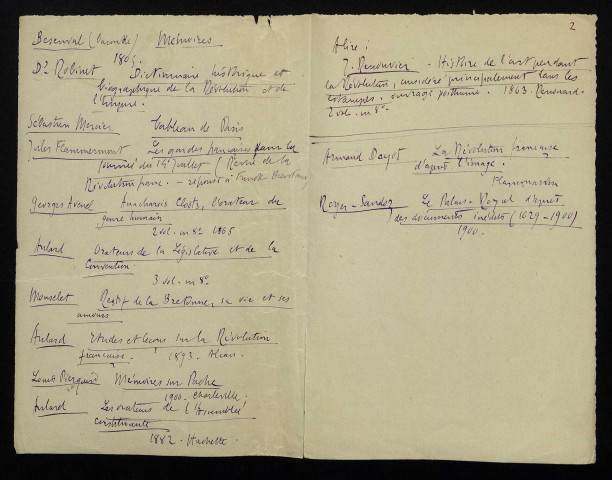 Besenval (Vicomte) Mémoires
1805.
Dr Robinet Dictionnaire historique et
biographique de la Révolution et de
l'Empire.
Sébastien Mercier Tableau de Paris
Jules Flammermont Les gardes françaises dans la
journée du 14 juillet (Revue de la
Révolution franç. - réponse à Funck Brentano
Georges Avenel Anacharsis Cloots, l'orateur du
genre humain
2 vol. in 8º 1865
Aulard Orateurs de la Législative et de la
Convention
3 vol. in 8º
Monselet Restif de la Bretonne, sa vie et ses
amours
Aulard Etudes et leçons sur la Révolution
française. 1893. Alcan.
Louis Pierquin Mémoires sur Pache
1900. Charleville.
Aulard Les orateurs de l'Assemblée
constituante
1882. Hachette.
2
A lire :
J. Renouvier - Histoire de l'art pendant
la Révolution, considéré principalement dans les
estampes. ouvrage posthume. 1863. Renouard.
2 vol. in 8º
Armand Dayot La Révolution française
d'après l'image.
Flammarion
Roger-Sandoz Le Palais-Royal d'après
des documents inédits (1629-1900)
1900.